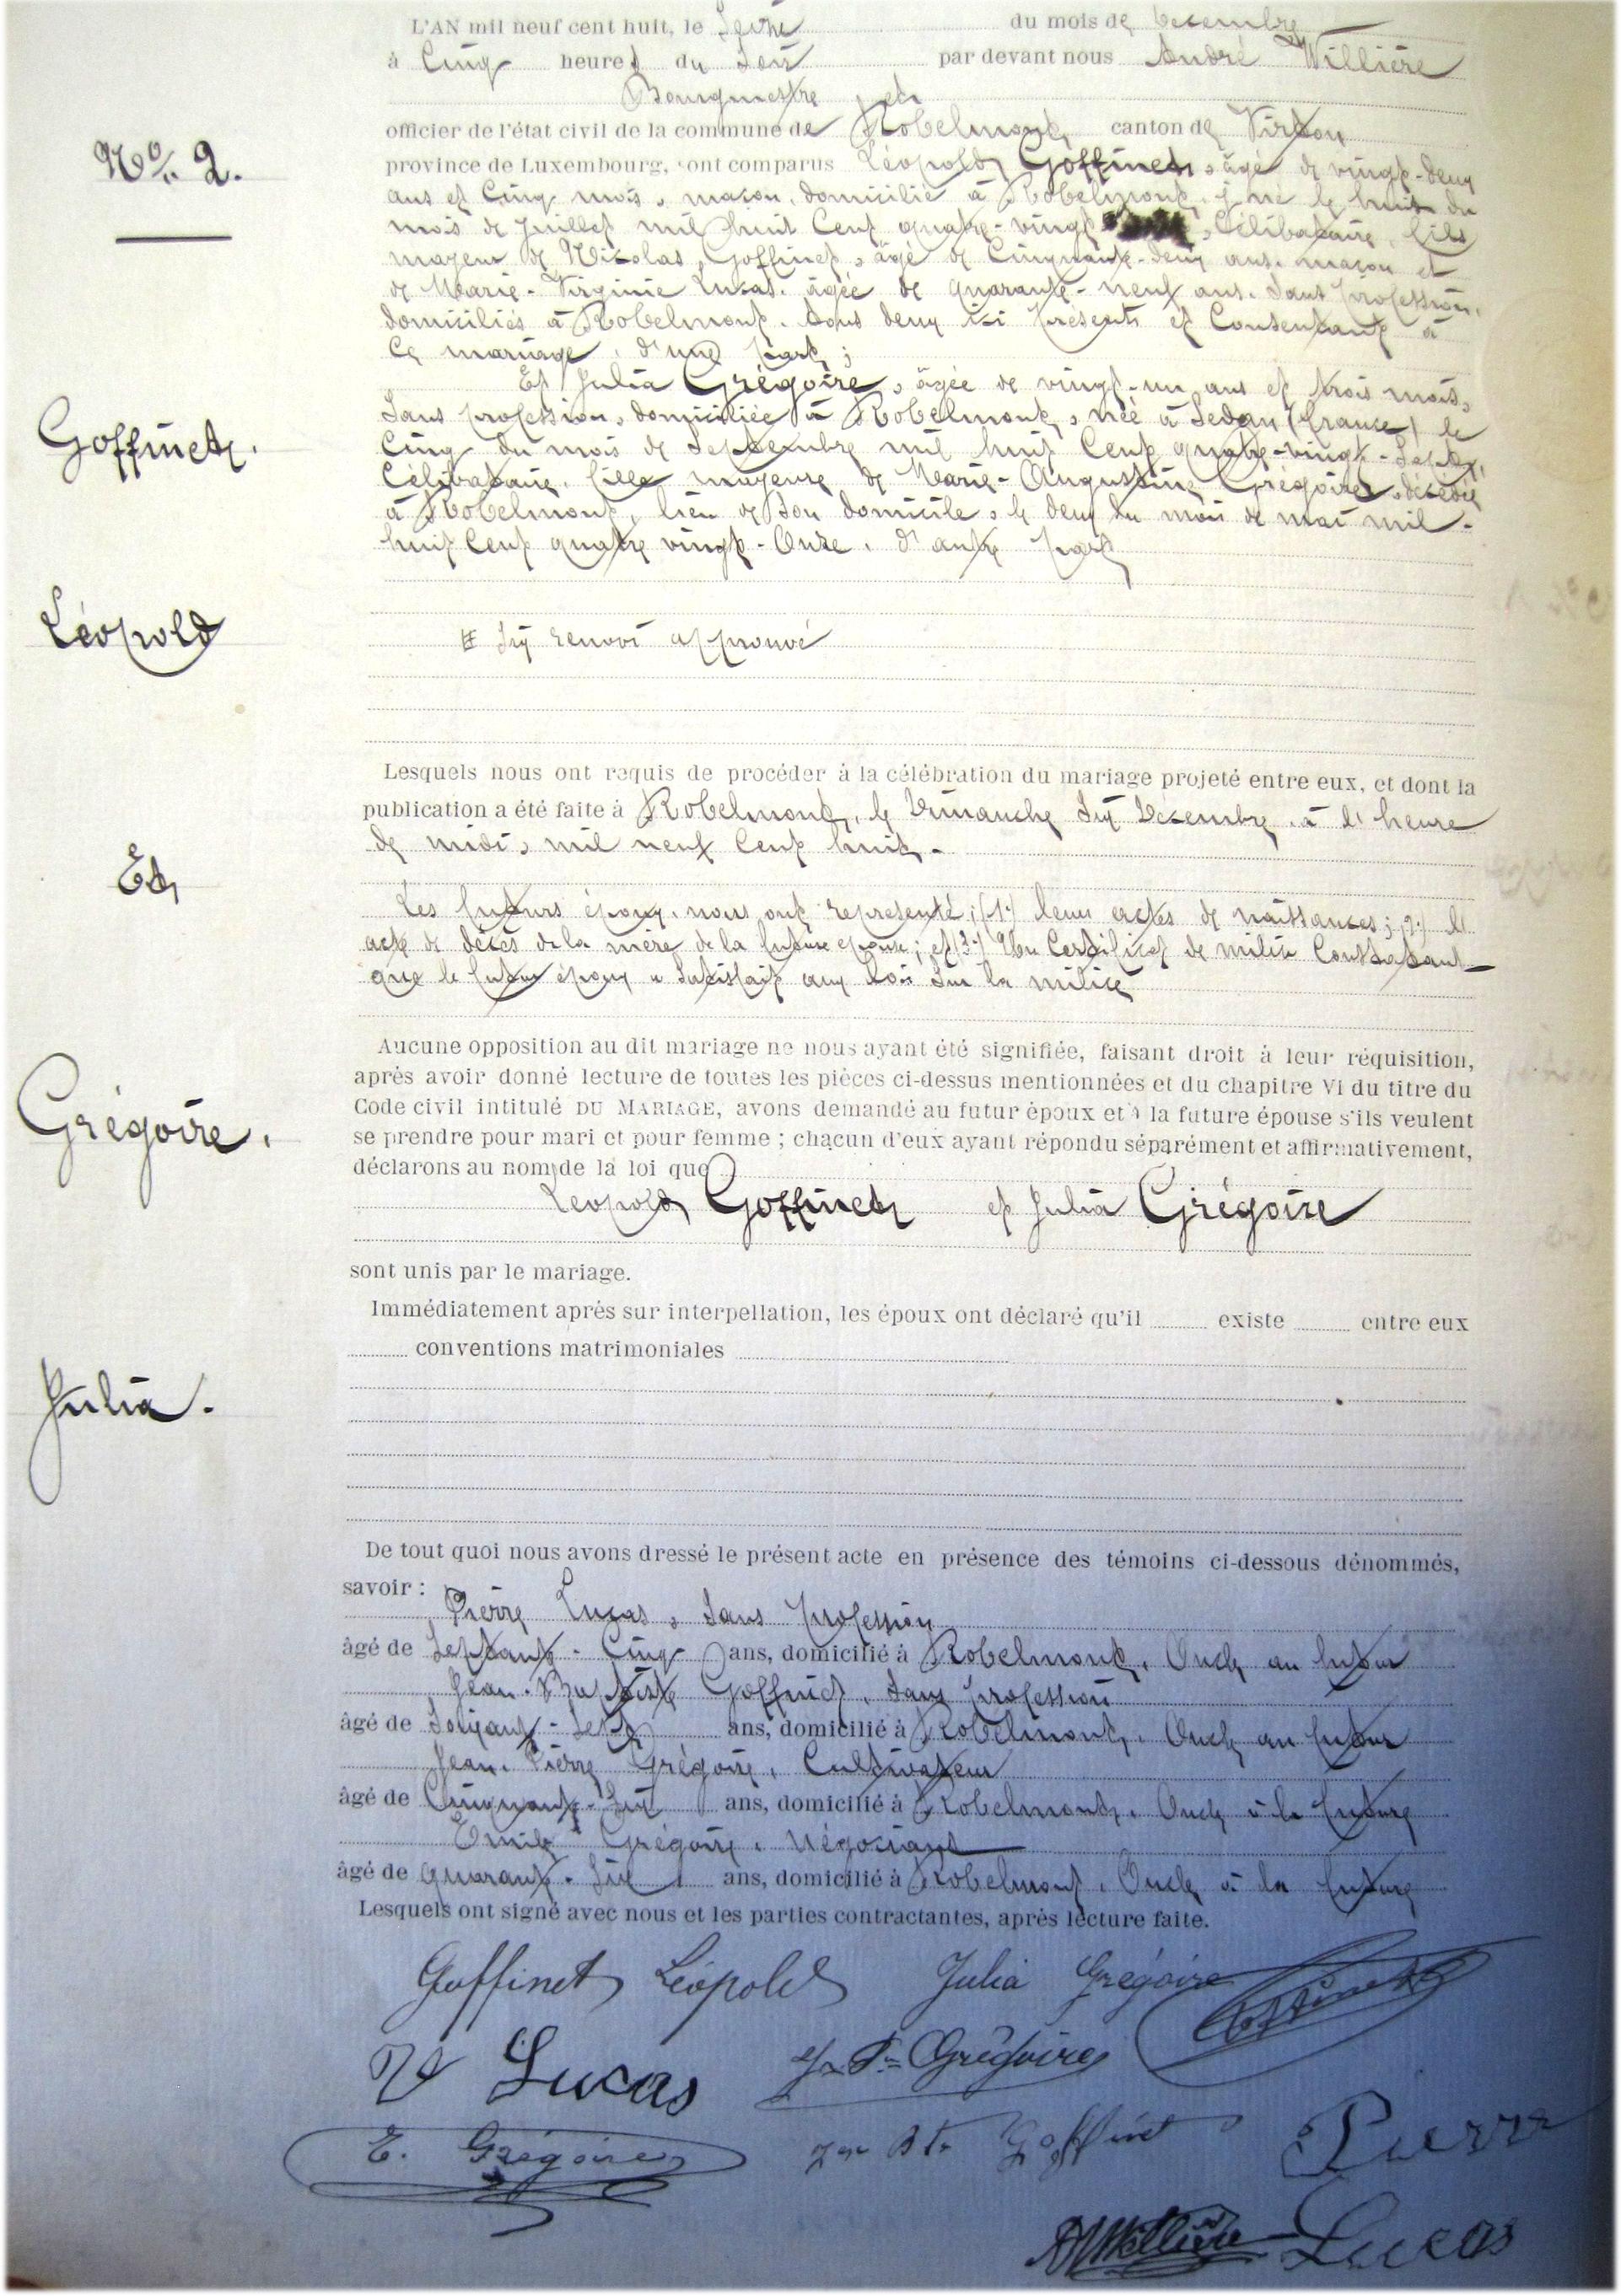 L'AN mil neuf cent huit, le Seize du mois de Décembre
à Cinq heures du Soir par devant nous André Willière
Bourgmestre
officier de l'état civil de la commune de Robelmont, canton de Virton
province de Luxembourg, ont comparus Léopold Goffinet, âgé de vingt-deux
ans et Cinq mois, maçon, domicilié à Robelmont, y né le huit du
mois de Juillet mil huit Cent quatre-vingt , Célibataire, fils
majeur de Nicolas Goffinet, âgé de Cinquante-deux ans, maçon et
de Marie-Virginie Lucas, âgée de quarante-neuf ans, Sans profession,
domiciliés à Robelmont, tous deux ici présents et Consentant à
Ce mariage, d'une part;
Et Julia Grégoire, âgée de vingt-un ans et trois mois,
Sans profession, domiciliée à Robelmont, née à Sedan (France) le
Cinq du mois de Septembre mil huit Cent quatre-vingt-Sept,
Célibataire, fille majeure de Marie-Augustine Grégoire, décédée
à Robelmont, lieu de Son domicile, le deux du mois de mai mil-
huit Cent quatre vingt-Onze, d'autre part
renvoi approuvé
Lesquels nous ont requis de procéder à la célébration du mariage projeté entre eux, et dont la
publication a été faite à Robelmont, le Dimanche Six Décembre, à l'heure
de midi, mil neuf Cent huit.-
Les futurs époux, nous ont représenté; (1°) leurs actes de naissances; 2°) l'
acte de décès de la mère de la future épouse; et (3°) Un Certificat de milice Constatant
que le futur époux a Satisfait aux lois Sur la milice
Aucune opposition au dit mariage ne nous ayant été signifiée, faisant droit à leur réquisition,
après avoir donné lecture de toutes les pièces ci-dessus mentionnées et du chapitre VI du titre du
Code civil intitulé DU MARIAGE, avons demandé au futur époux et à la future épouse s'ils veulent
se prendre pour mari et pour femme ; chacun d'eux ayant répondu séparément et affirmativement,
déclarons au nom de la loi que
Léopold Goffinet et Julia Grégoire
sont unis par le mariage.
Immédiatement après sur interpellation, les époux ont déclaré qu'il existe entre eux
conventions matrimoniales
De tout quoi nous avons dressé le présent acte en présence des témoins ci-dessous dénommés,
savoir :
Pierre Lucas, Sans profession
âgé de Septante-Cinq ans, domicilié à Robelmont, Oncle au futur
Jean-Baptiste Goffinet, Sans profession
âgé de Soixante-Sept ans, domicilié à Robelmont, Oncle au futur
Jean-Pierre Grégoire, Cultivateur
âgé de Cinquante-Six ans, domicilié à Robelmont, Oncle à la future
Emile Grégoire, Négociant
âgé de quarante-Six ans, domicilié à Robelmont, Oncle à la future
Lesquels ont signé avec nous et les parties contractantes, après lecture faite.
Goffinet Léopold Julia Grégoire Goffinet
Lucas Grégoire
E. Grégoire Goffinet Pierre
AWillière Lucas
N° 2.
Goffinet.
Léopold
Et
Grégoire,
Julia.